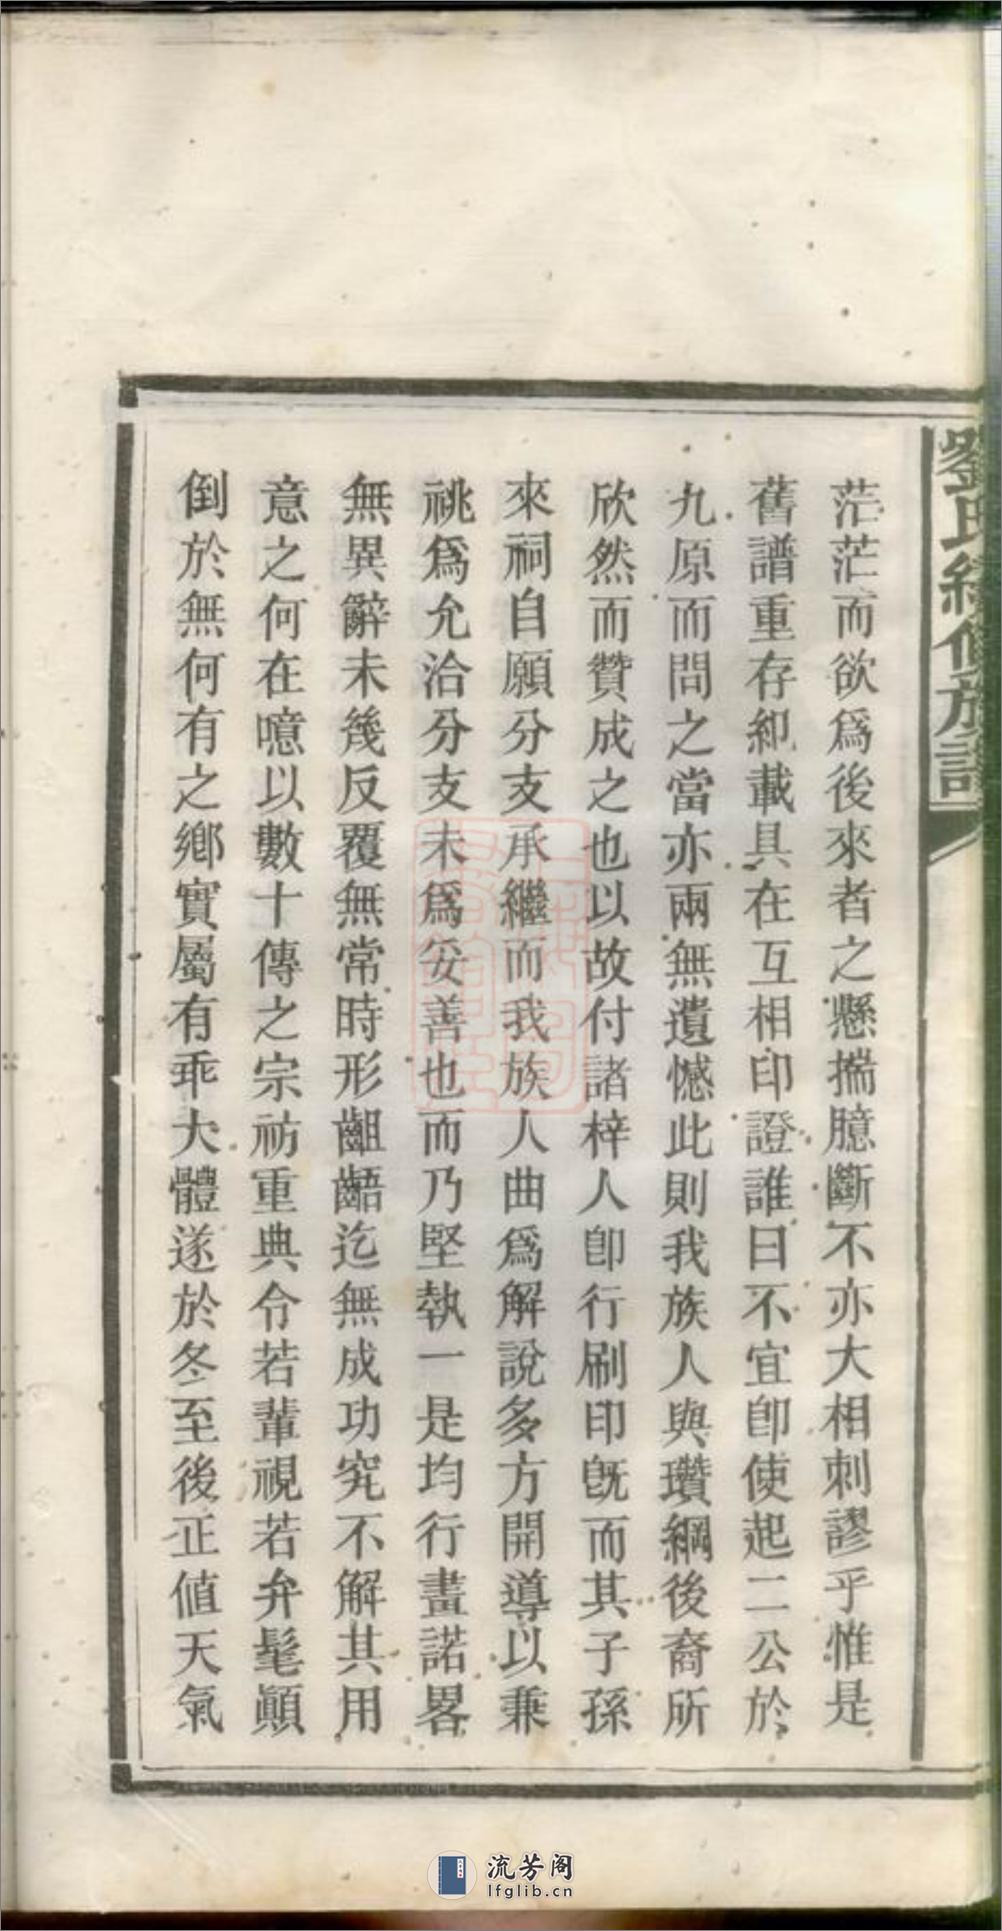 劉氏續修族譜
茫茫而欲爲後來者之懸揣臆斷不亦大相刺謬乎惟是
舊譜重存紀載具在互相印證誰曰不宜卽使起二公於
九原而問之當亦兩無遺憾此則我族人與瓚綱後裔所
欣然而贊成之也以故付諸梓人卽行刷印旣而其子孫
來祠自願分支承繼而我族人曲爲解說多方開導以兼
祧爲允洽分支未爲妥善也而乃堅執一是均行畫諾畧
無異辭未幾反覆無常時形齟齬迄無成功究不解其用
意之何在噫以數十傳之宗祊重典令若輩視若弁髦顚
倒於無何有之鄉實屬有乖大體遂於冬至後正值天氣
流芳阁
lfglib.cn